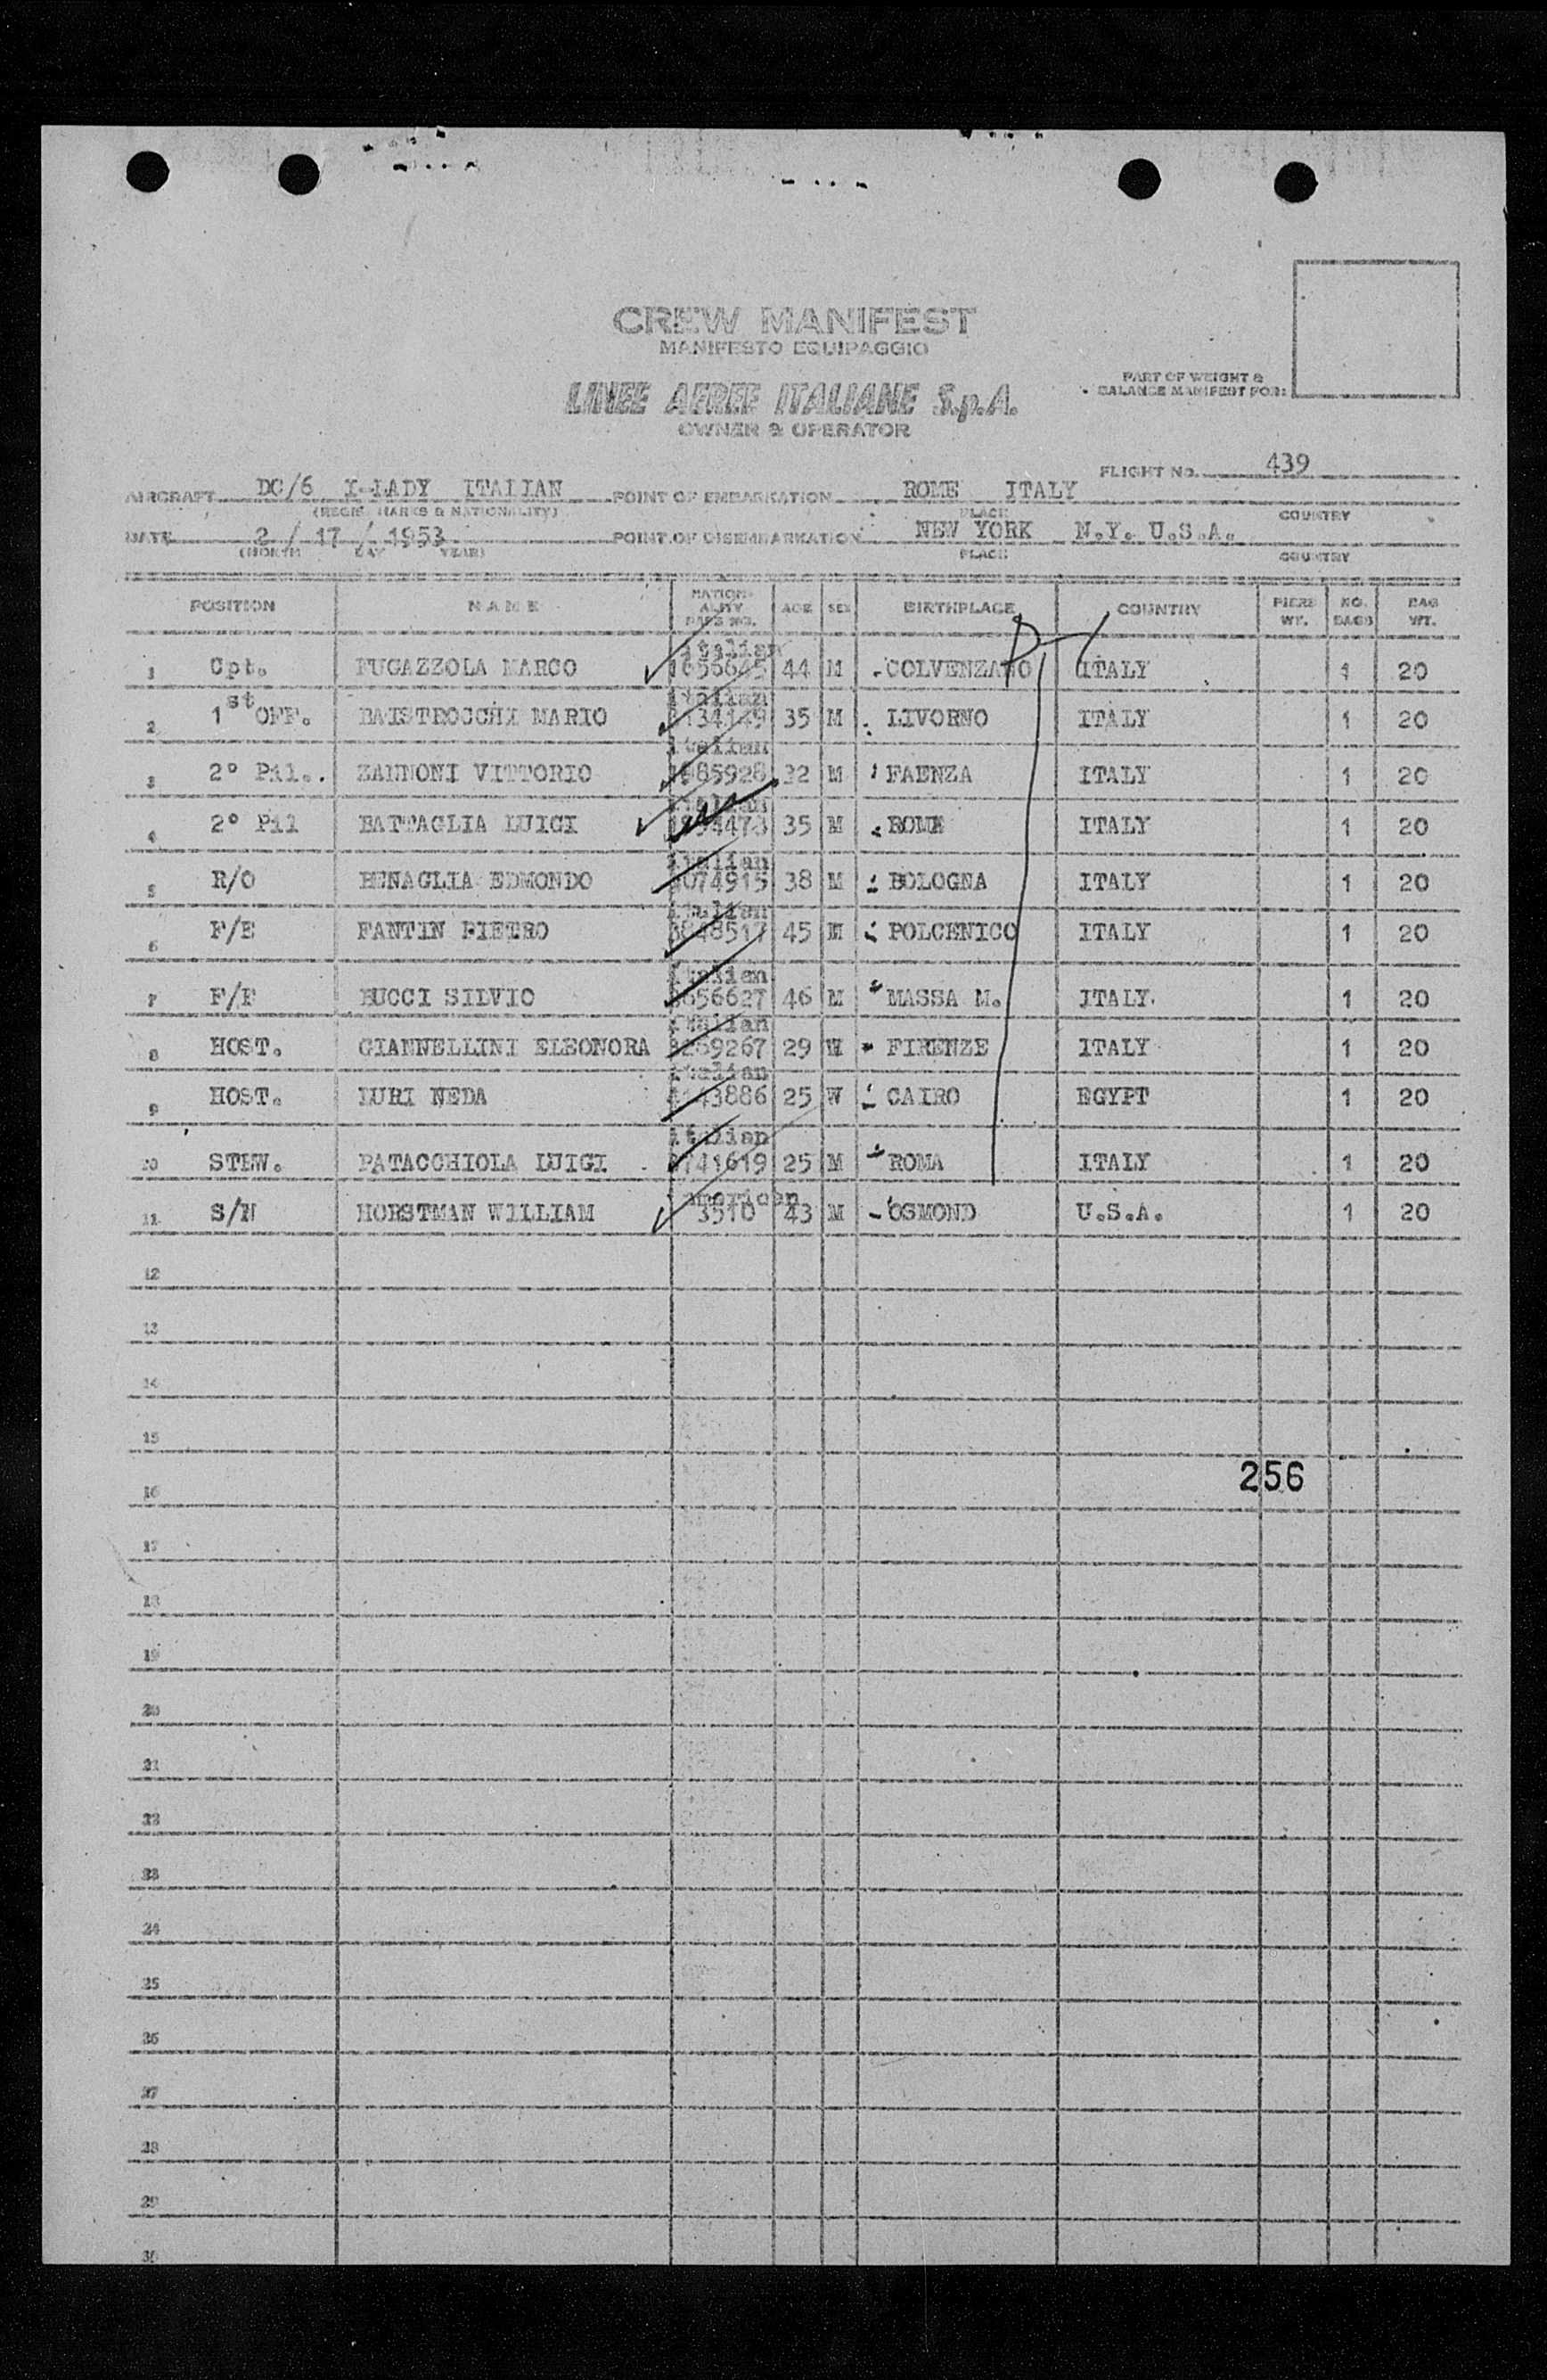 CREW MANIFEST
MANIFESTO EQUIPAGGIO
LINEE AEREE ITALIANE S.p.A.
OWNER & OPERATOR
PART OF WEIGHT &
BALANCE MANIFEST FOR:
FLIGHT NO. 439
AIRCRAFT DC/6 I-LADY ITALIAN POINT OF EMBARKATION ROME ITALY
(REGIS. MARKS & NATIONALITY) PLACE COUNTRY
DATE 2 / 17 / 1953 POINT OF DISEMBARKATION NEW YORK N.Y. U.S.A.
(MONTH DAY YEAR) PLACE COUNTRY
POSITION NAME NATION-ALITY PASS NO. AGE SEX BIRTHPLACE COUNTRY PIERS WT. NO. BAGS BAG WT.
1 Cpt. FUGAZZOLA MARCO Italian 44 M COLVENZANO ITALY 1 20
2 1st OFF. BAISTROCCHI MARIO Italian 35 M LIVORNO ITALY 1 20
3 2° Pil.. ZANNONI VITTORIO Italian 32 M FAENZA ITALY 1 20
4 2° Pil BATTAGLIA LUIGI Italian 35 M ROME ITALY 1 20
5 R/O BENAGLIA EDMONDO Italian 38 M BOLOGNA ITALY 1 20
6 F/E FANTIN PIETRO Italian 45 M POLCENICO ITALY 1 20
7 F/E BUCCI SILVIO Italian 46 M MASSA M. ITALY. 1 20
8 HOST. GIANNELLINI ELEONORA Italian 29 W FIRENZE ITALY 1 20
9 HOST. LURI NEDA Italian 25 W CAIRO EGYPT 1 20
10 STEW. PATACCHIOLA LUIGI Italian 25 M ROMA ITALY 1 20
11 S/N HORSTMAN WILLIAM American 3510 43 M OSMOND U.S.A. 1 20
12
13
14
15
256
16
17
18
19
20
21
22
23
24
25
26
27
28
29
30